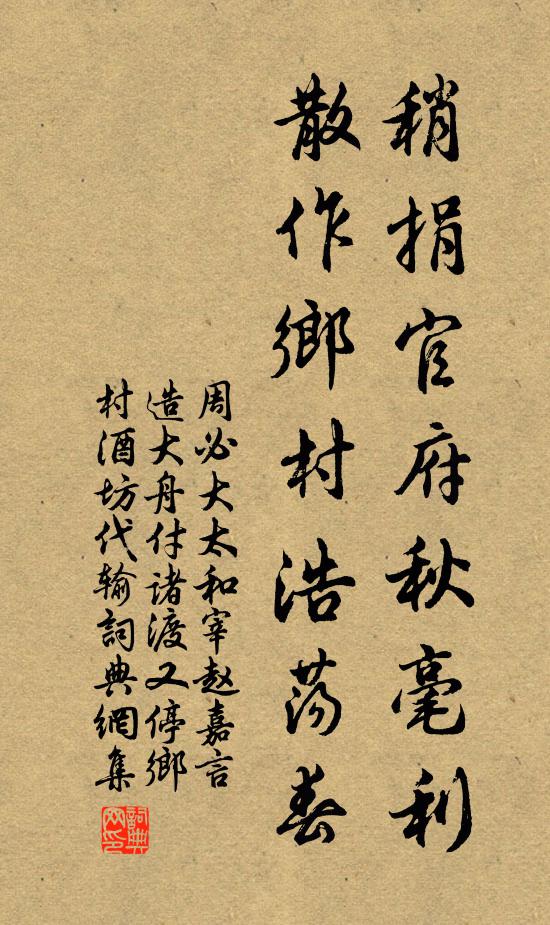 稍捐官府秋毫利
散作鄉村浩荡春
周必大太和宰赵嘉言
造大舟付诸渡又停鄉
村酒坊代输詞典網集
詞典
网印